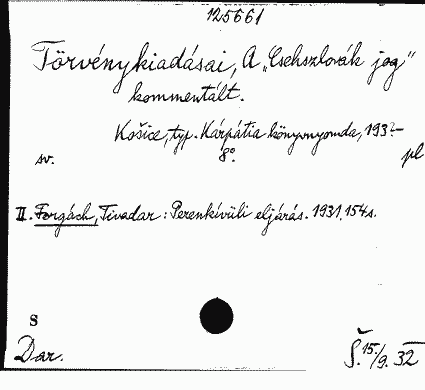 125661
Törvénykiadásai, A „Csehszlovák jog"
kommentált.
Košice, typ. Kárpátia könyvnyomda, 193?–
sv. 8°. pl
II. Forgách, Tivadar: Perenkívüli eljárás. 1931, 154s.
S
Dar. Š. 15./9. 32